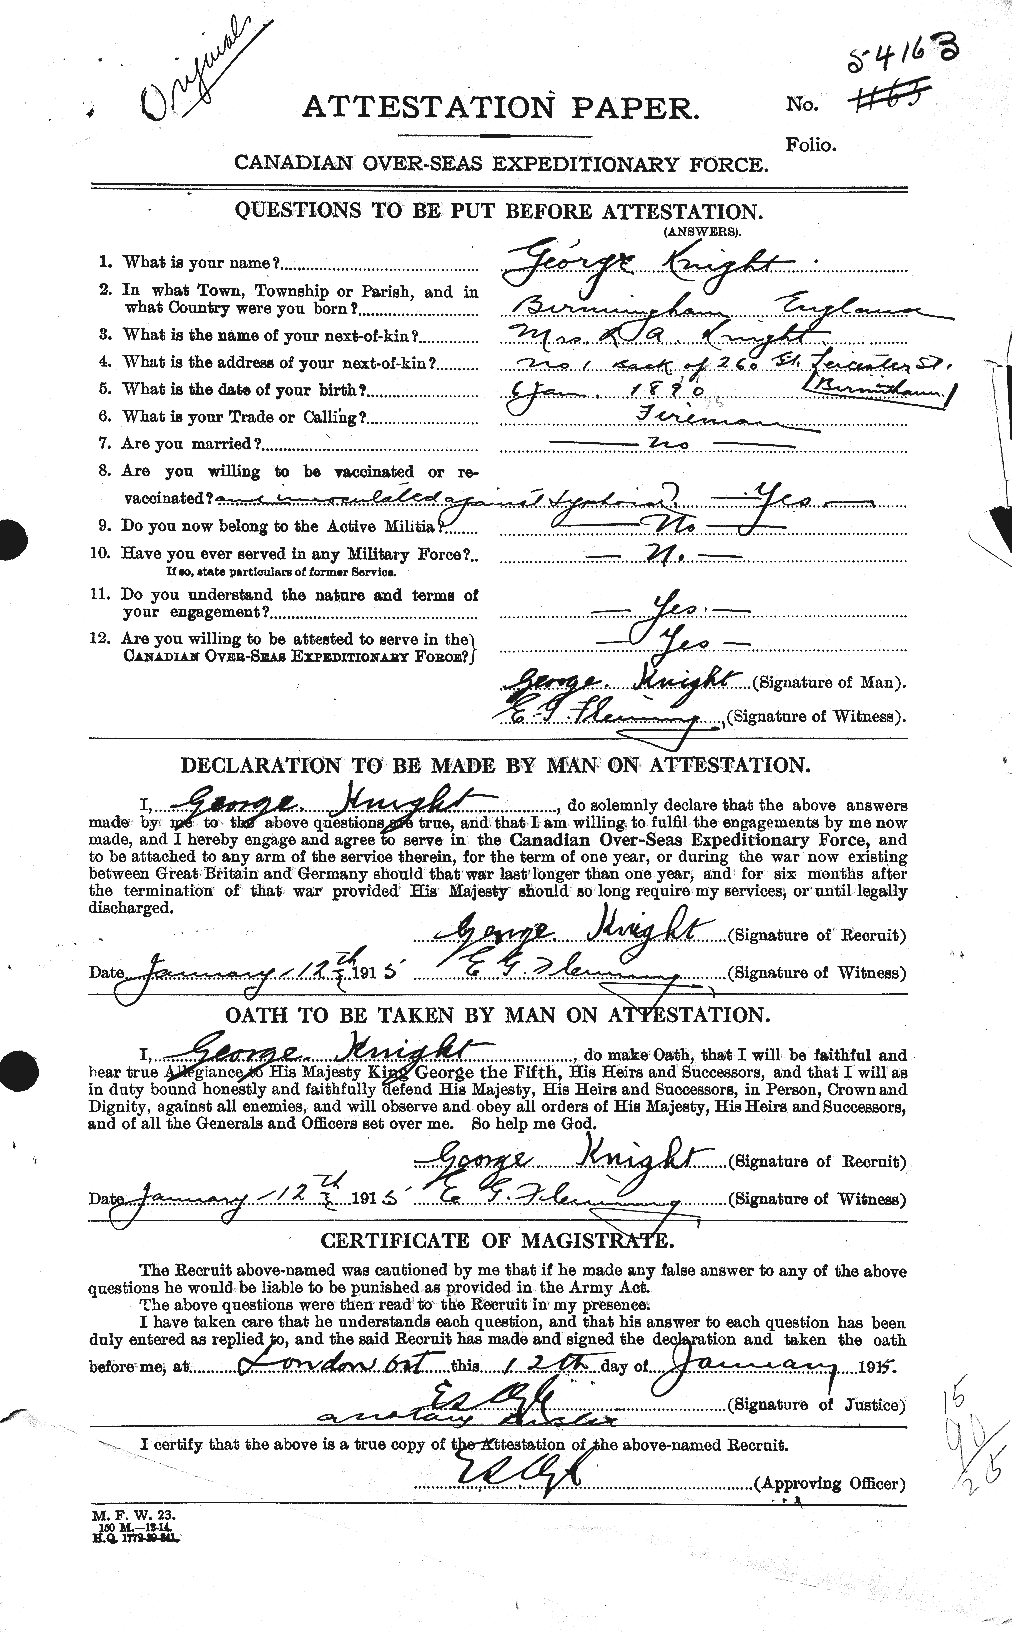 Original
54163
No. 1165
ATTESTATION PAPER.
Folio.
CANADIAN OVER-SEAS EXPEDITIONARY FORCE.
QUESTIONS TO BE PUT BEFORE ATTESTATION.
(ANSWERS).
1. What is your name? George Knight
2. In what Town, Township or Parish, and in
what Country were you born? Birmingham England
3. What is the name of your next-of-kin? Mrs. A. Knight
4. What is the address of your next-of-kin? No 1 back of 260 St. Leicester St.
5. What is the date of your birth? 6 Jan. 1890 Birmingham
6. What is your Trade or Calling? Fireman
7. Are you married? No
8. Are you willing to be vaccinated or re-
vaccinated? and inoculated against typhoid? Yes
9. Do you now belong to the Active Militia? No
10. Have you ever served in any Military Force? No
If so, state particulars of former Service.
11. Do you understand the nature and terms of
your engagement? Yes
12. Are you willing to be attested to serve in the
CANADIAN OVER-SEAS EXPEDITIONARY FORCE? Yes
George Knight (Signature of Man).
E. G. Flemming (Signature of Witness).
DECLARATION TO BE MADE BY MAN ON ATTESTATION.
I, George Knight, do solemnly declare that the above answers
made by me to the above questions are true, and that I am willing to fulfil the engagements by me now
made, and I hereby engage and agree to serve in the Canadian Over-Seas Expeditionary Force, and
to be attached to any arm of the service therein, for the term of one year, or during the war now existing
between Great Britain and Germany should that war last longer than one year, and for six months after
the termination of that war provided His Majesty should so long require my services, or until legally
discharged.
George Knight (Signature of Recruit)
Date January 12th 1915 E G Flemming (Signature of Witness)
OATH TO BE TAKEN BY MAN ON ATTESTATION.
I, George Knight, do make Oath, that I will be faithful and
bear true Allegiance to His Majesty King George the Fifth, His Heirs and Successors, and that I will as
in duty bound honestly and faithfully defend His Majesty, His Heirs and Successors, in Person, Crown and
Dignity, against all enemies, and will observe and obey all orders of His Majesty, His Heirs and Successors,
and of all the Generals and Officers set over me. So help me God.
George Knight (Signature of Recruit)
Date January 12th 1915 E G. Flemming (Signature of Witness)
CERTIFICATE OF MAGISTRATE.
The Recruit above-named was cautioned by me that if he made any false answer to any of the above
questions he would be liable to be punished as provided in the Army Act.
The above questions were then read to the Recruit in my presence.
I have taken care that he understands each question, and that his answer to each question has been
duly entered as replied to, and the said Recruit has made and signed the declaration and taken the oath
before me, at London Ont this 12th day of January 1915.
(Signature of Justice)
I certify that the above is a true copy of the Attestation of the above-named Recruit.
(Approving Officer)
15
90
25
M. F. W. 23.
150 M.—12-14.
H.Q. 1772-39-841.